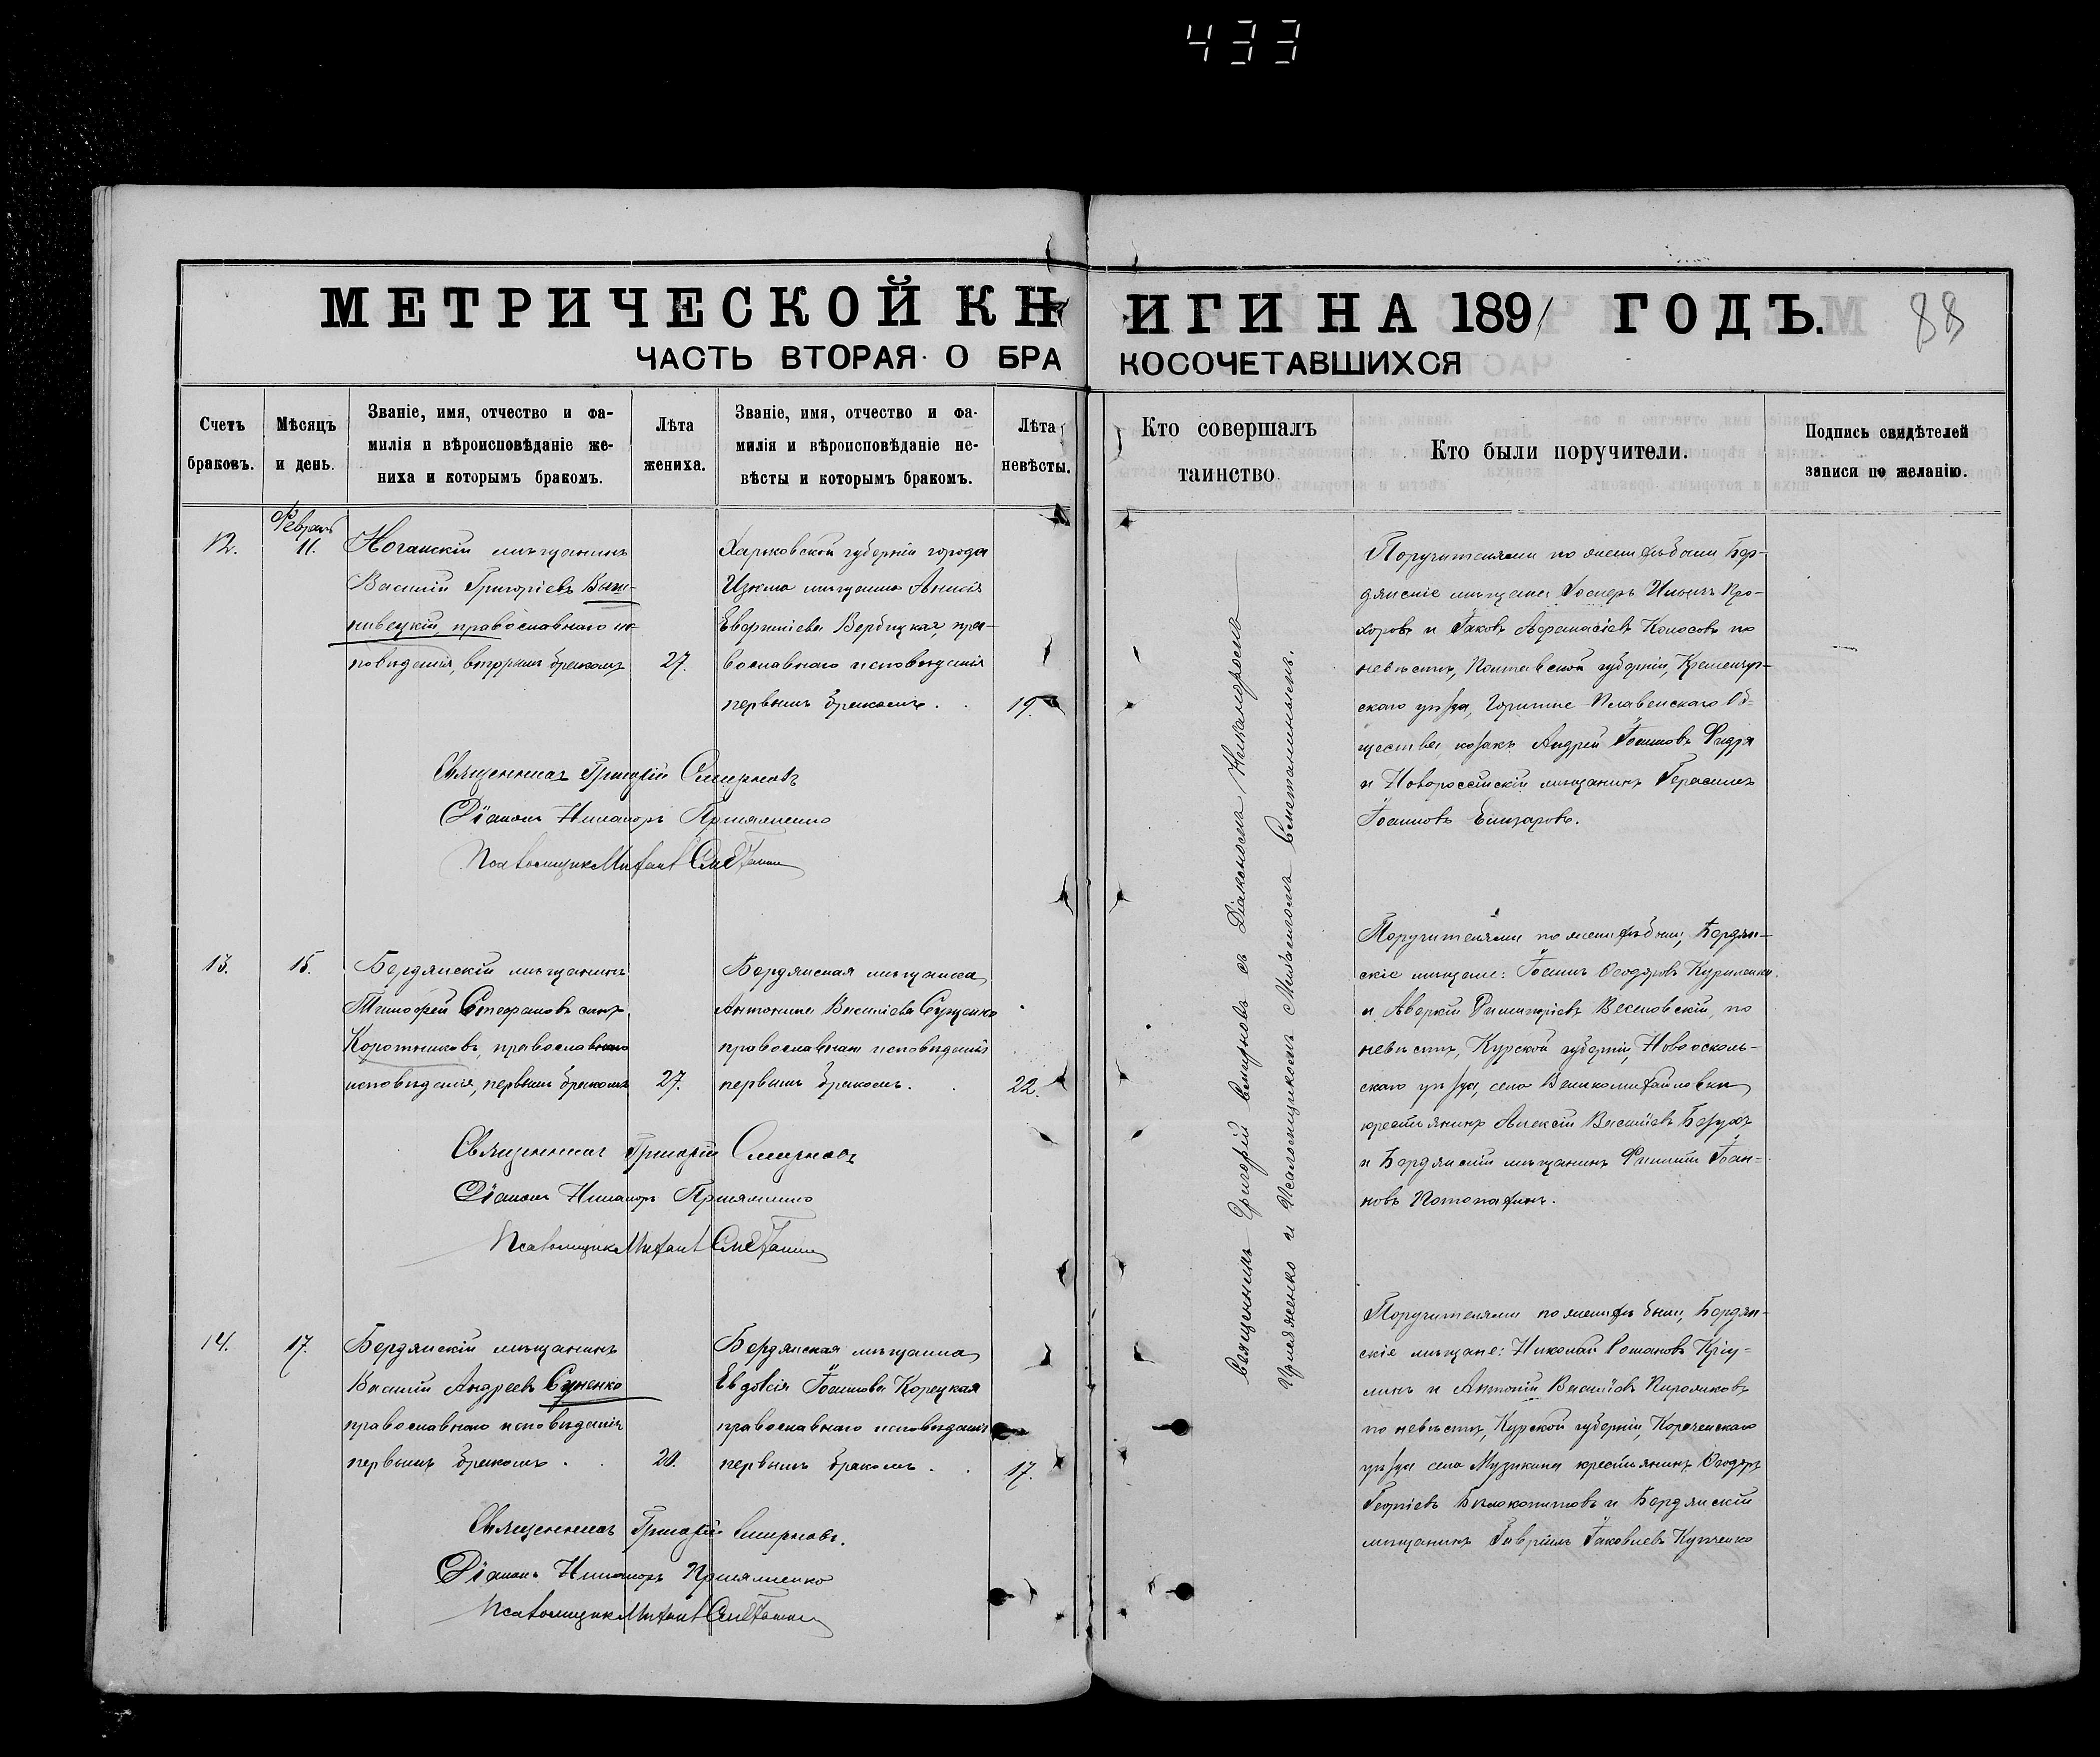 433
МЕТРИЧЕСКОЙ КНИГИ НА 1891 ГОДЪ.
88
ЧАСТЬ ВТОРАЯ О БРАКОСОЧЕТАВШИХСЯ
Счетъ браковъ.
Мѣсяцъ и день.
Званіе, имя, отчество и фа-
милія и вѣроисповѣданіе же-
ниха и которымъ бракомъ.
Лѣта жениха.
Званіе, имя, отчество и фа-
милія и вѣроисповѣданіе не-
вѣсты и которымъ бракомъ.
Лѣта невѣсты.
Кто совершалъ таинство.
Кто были поручители.
Подпись свидѣтелей
записи по желанію.
12.
Февраль
11.
Ногайскій мѣщанинъ
Василій Григоріевъ
православнаго ис-
повѣданія, вторымъ бракомъ
27.
Харьковской губерніи города
Изюма мѣщанка Анисія
Евфиміева Вербицкая, пра-
вославнаго исповѣданія
первымъ бракомъ.
19.
Священникъ Григорій Смирновъ
Діаконъ Никаноръ
Псаломщикъ Михаилъ Сметанин
Священникъ Григорій Смирновъ съ Діакономъ Никаноромъ
и Псаломщикомъ Михаиломъ Сметанинымъ.
Поручителями по женихѣ были Бер-
дянскіе мѣщане Іосифъ Ильинъ Про-
хоровъ и Іаковъ Афанасіевъ Колосовъ по
невѣстѣ, Полтавской губерніи, Кременчуг-
скаго уѣзда, Горишне-Плавенскаго Об-
щества, козакъ Андрей Іоанновъ
и Новороссійскій мѣщанинъ Герасимъ
Іоанновъ Елизаровъ.
13.
15.
Бердянскій мѣщанинъ
Тимофей Стефановъ сынъ
Коротниковъ, православнаго
исповѣданія, первымъ бракомъ
27.
Бердянская мѣщанка
Антонина Василіева Сущенко
православнаго исповѣданія
первымъ бракомъ.
22.
Священникъ Григорій Смирновъ
Діаконъ Никаноръ
Псаломщикъ Михаилъ Сметанин
Поручителями по женихѣ были, Бердян-
скіе мѣщане: Іоаннъ Ѳеодоровъ Куриленко
и Аверкій Весновскій, по
невѣстѣ, Курской губерніи, Новоосколь-
скаго уѣзда, села Великомихайловки
крестьянинъ Алексій Василіевъ
и Бердянскій мѣщанинъ Филиппъ Іоан-
новъ Потопахинъ.
14.
17.
Бердянскій мѣщанинъ
Василій Андреевъ Суненко
православнаго исповѣданія
первымъ бракомъ.
20.
Бердянская мѣщанка
Евдокія Іоаннова Корецкая
православнаго исповѣданія
первымъ бракомъ.
17.
Священникъ Григорій Смирновъ.
Діаконъ Никаноръ
Псаломщикъ Михаилъ Сметанин
Поручителями по женихѣ были, Бердян-
скіе мѣщане: Николай Романовъ
и Антоній Василіевъ
по невѣстѣ, Курской губерніи, Корочанскаго
уѣзда села Музикина крестьянинъ Ѳеодоръ
Георгіевъ Бѣлокопытовъ и Бердянскій
мѣщанинъ Гавріилъ Іаковлевъ Купченко